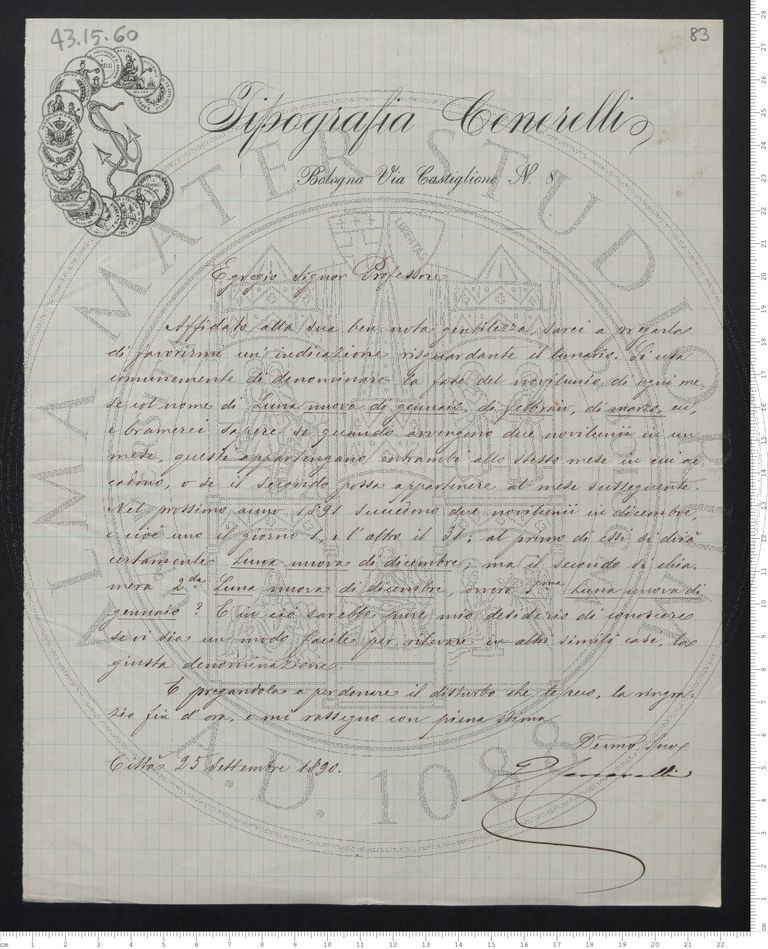 43.15.60
83
Tipografia Cenerelli
Bologna Via Castiglione N. 8
Egregio Signor Professore
Affidato alla sua ben nota gentilezza, sarei a pregarla
di favorirmi un'indicazione risguardante il lunario. Si usa
comunemente di denominare la fase del novilunio di ogni me-
se col nome di Luna nuova di gennaio, di febbraio, di marzo, ec,
e bramerei sapere se quando avvengono due novilunii in un
mese, questi appartengano entrambi allo stesso mese in cui ac-
cadono, o se il secondo possa appartenere al mese susseguente.
Nel prossimo anno 1891 succedono due novilunii in dicembre,
e cioè uno il giorno 1, e l'altro il 31: al primo di essi si dirà
certamente Luna nuova di dicembre; ma il secondo si chia-
merà 2.da Luna nuova di dicembre, ovvero 1.ma Luna nuova di
gennaio? E in ciò sarebbe pure mio desiderio di conoscere
se vi sia un modo facile per rilevare in altri simili casi, la
giusta denominazione.
E pregandola a perdonare il disturbo che le reco, la ringra-
zio fin d'ora, e mi rassegno con piena stima
Devmo Suo
Città 25 Settembre 1890.
ALMA MATER STUDIORUM
A.D. 1088